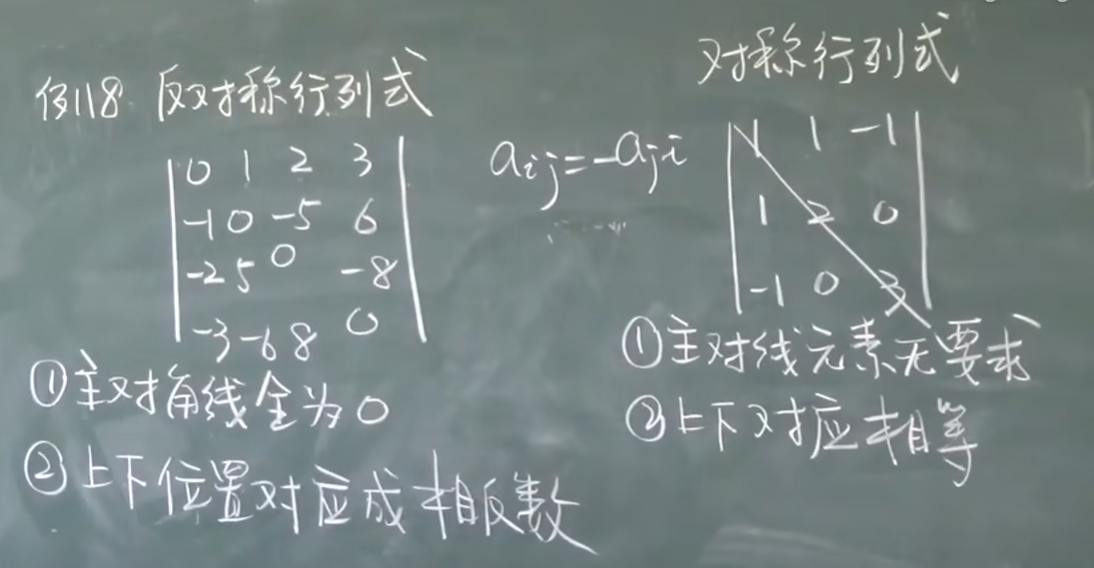 例18 反对称行列式
0 1 2 3
-1 0 -5 6
-2 5 0 -8
-3 -6 8 0
①主对角线全为0
②上下位置对应成相反数
aij=-aji
对称行列式
1 1 -1
1 2 0
-1 0 3
①主对线元素无要求
②上下对应相等